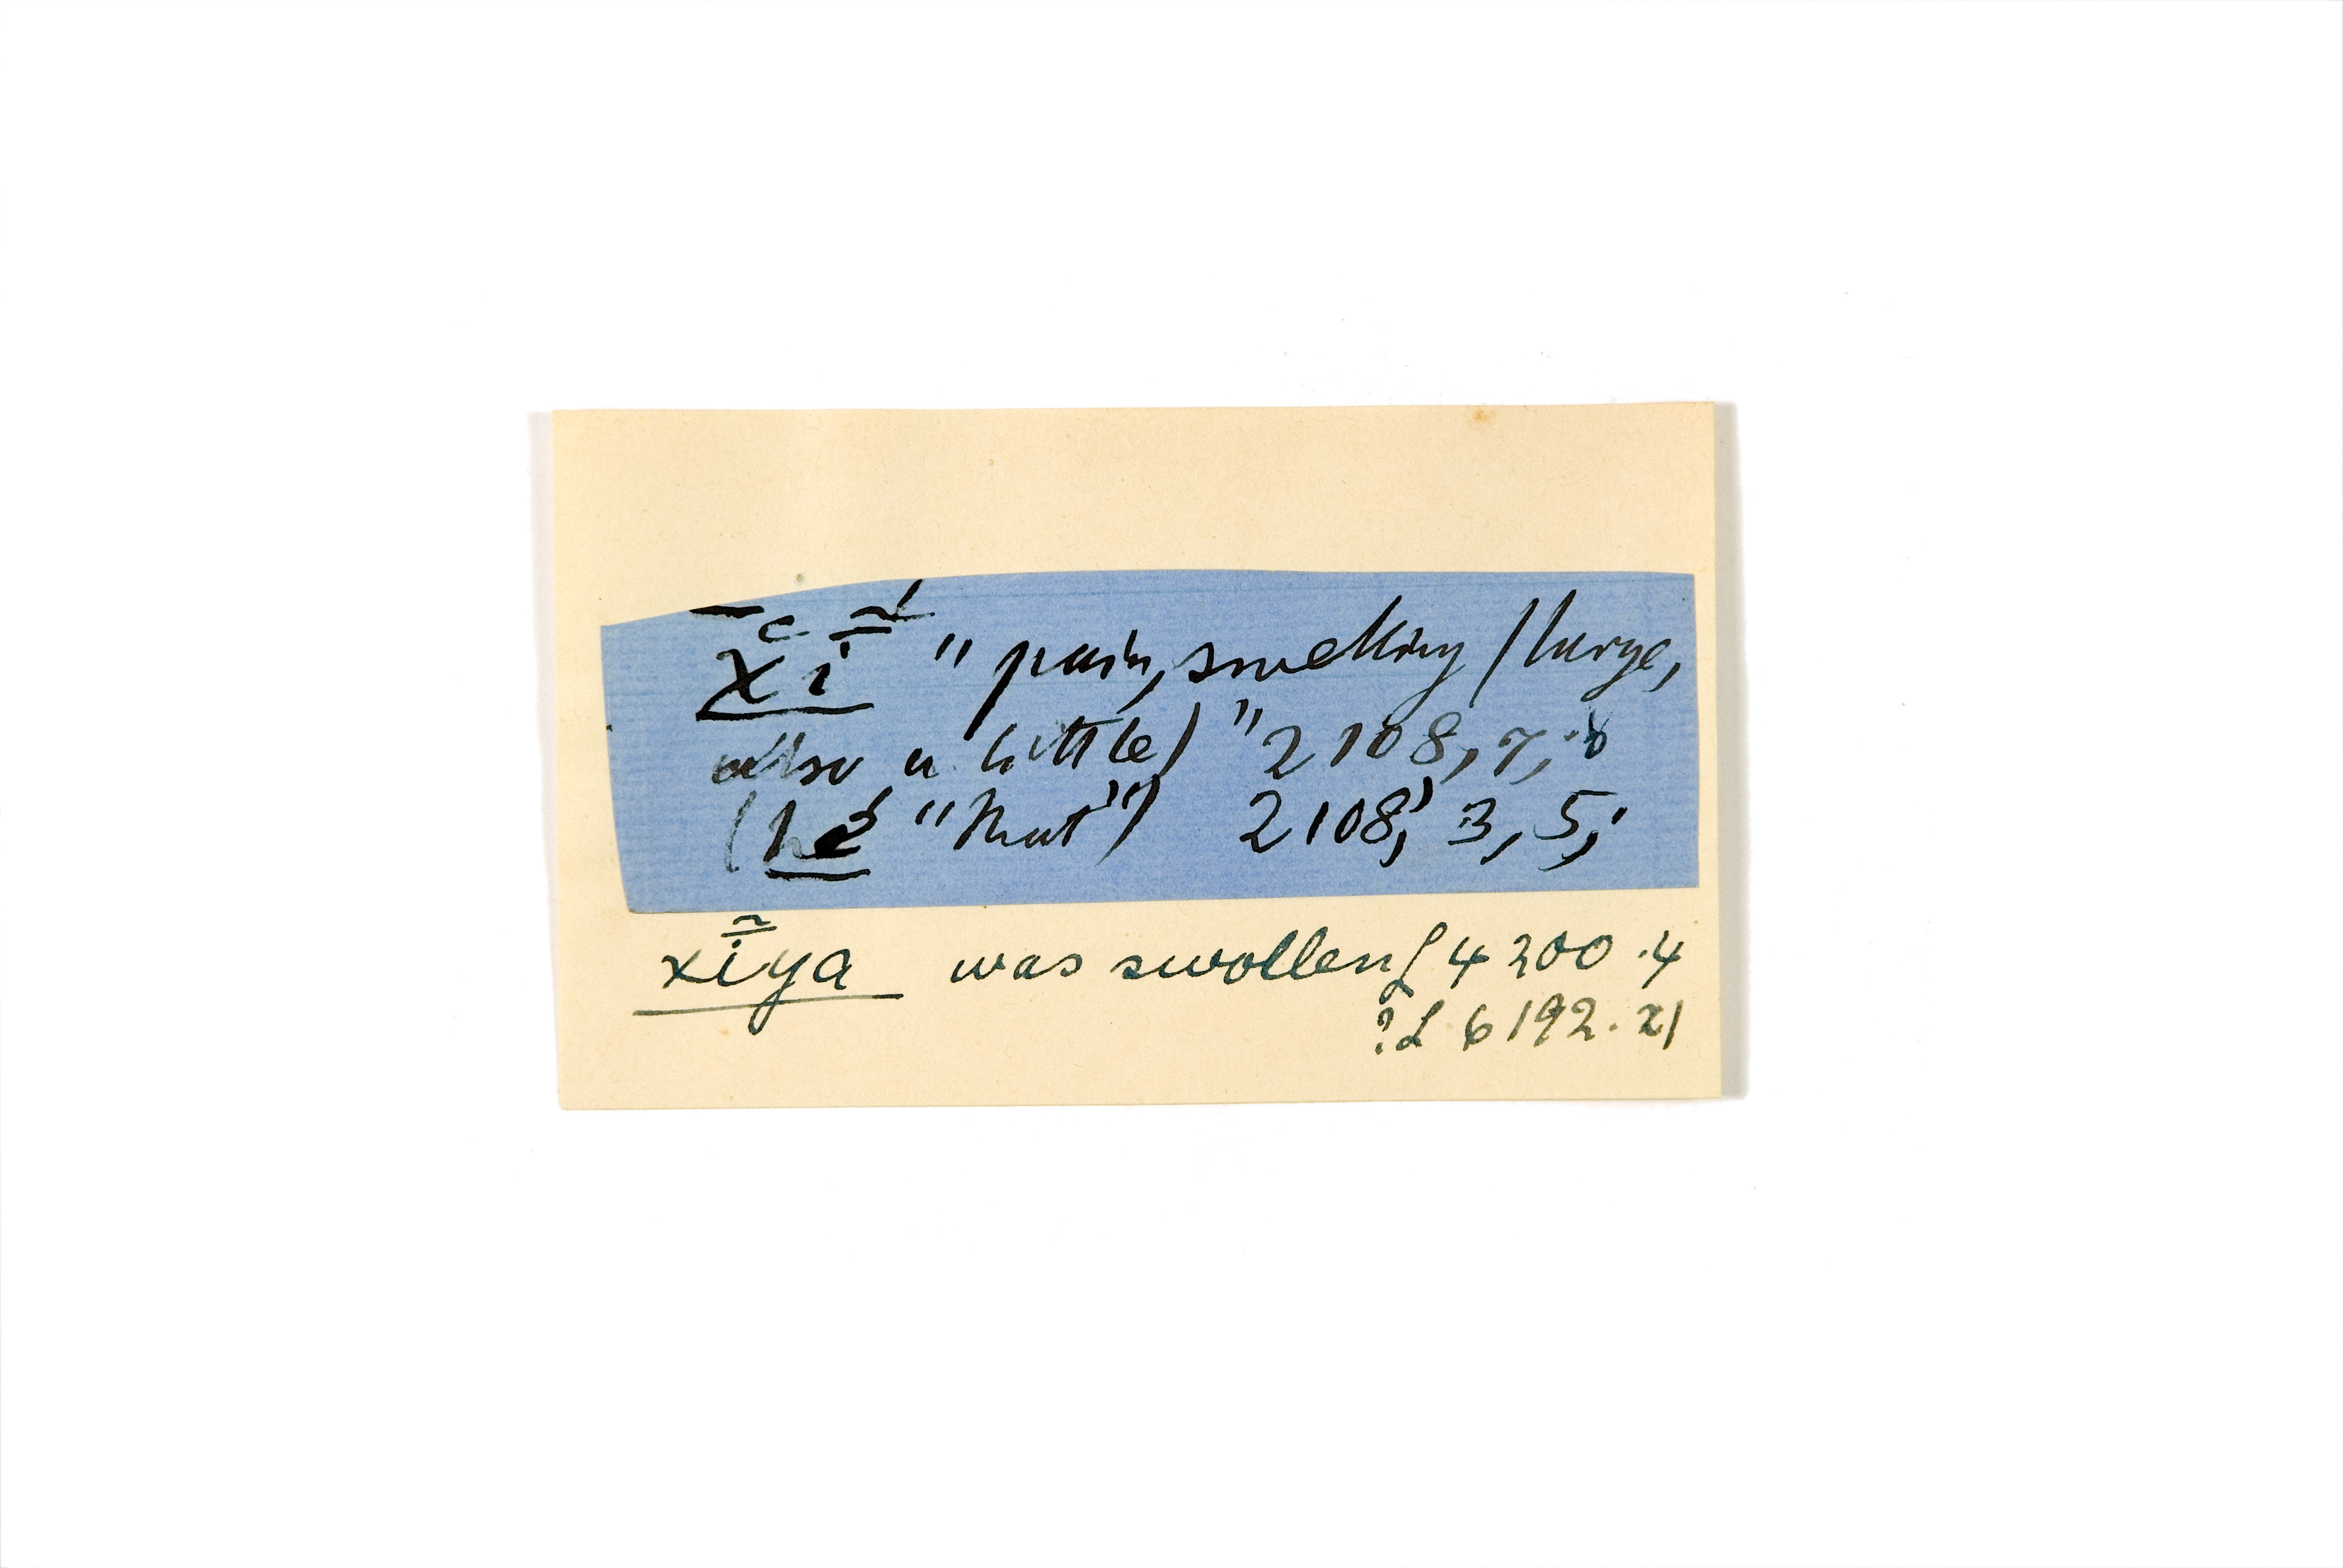 χi "pain, swelling (large,
also a little)" 2108, 7, 8
(he "that") 2108, 3, 5;
xiya was swollen L 4 200.4
? L 6 192.21